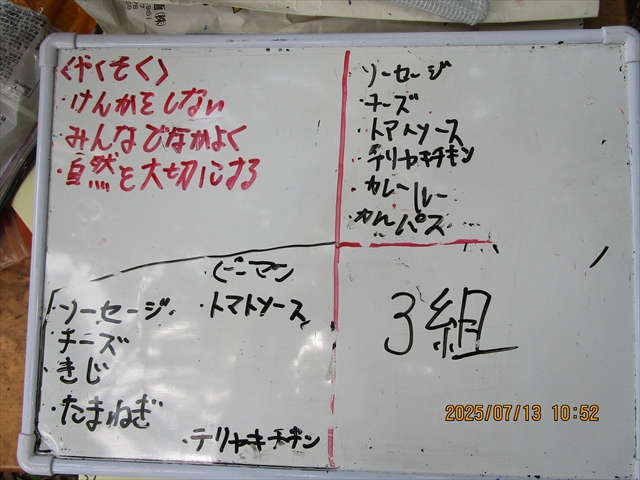 〈やくそく〉
・けんかをしない
・みんなでなかよく
・自然を大切にする
ソーセージ
・チーズ
・トマトソース
・テリヤキチキン
・カレールー
・カルパス
・ピーマン
・ソーセージ
・トマトソース
・チーズ
・きじ
・たまねぎ
・テリヤキチキン
3組
2025/07/13 10:52